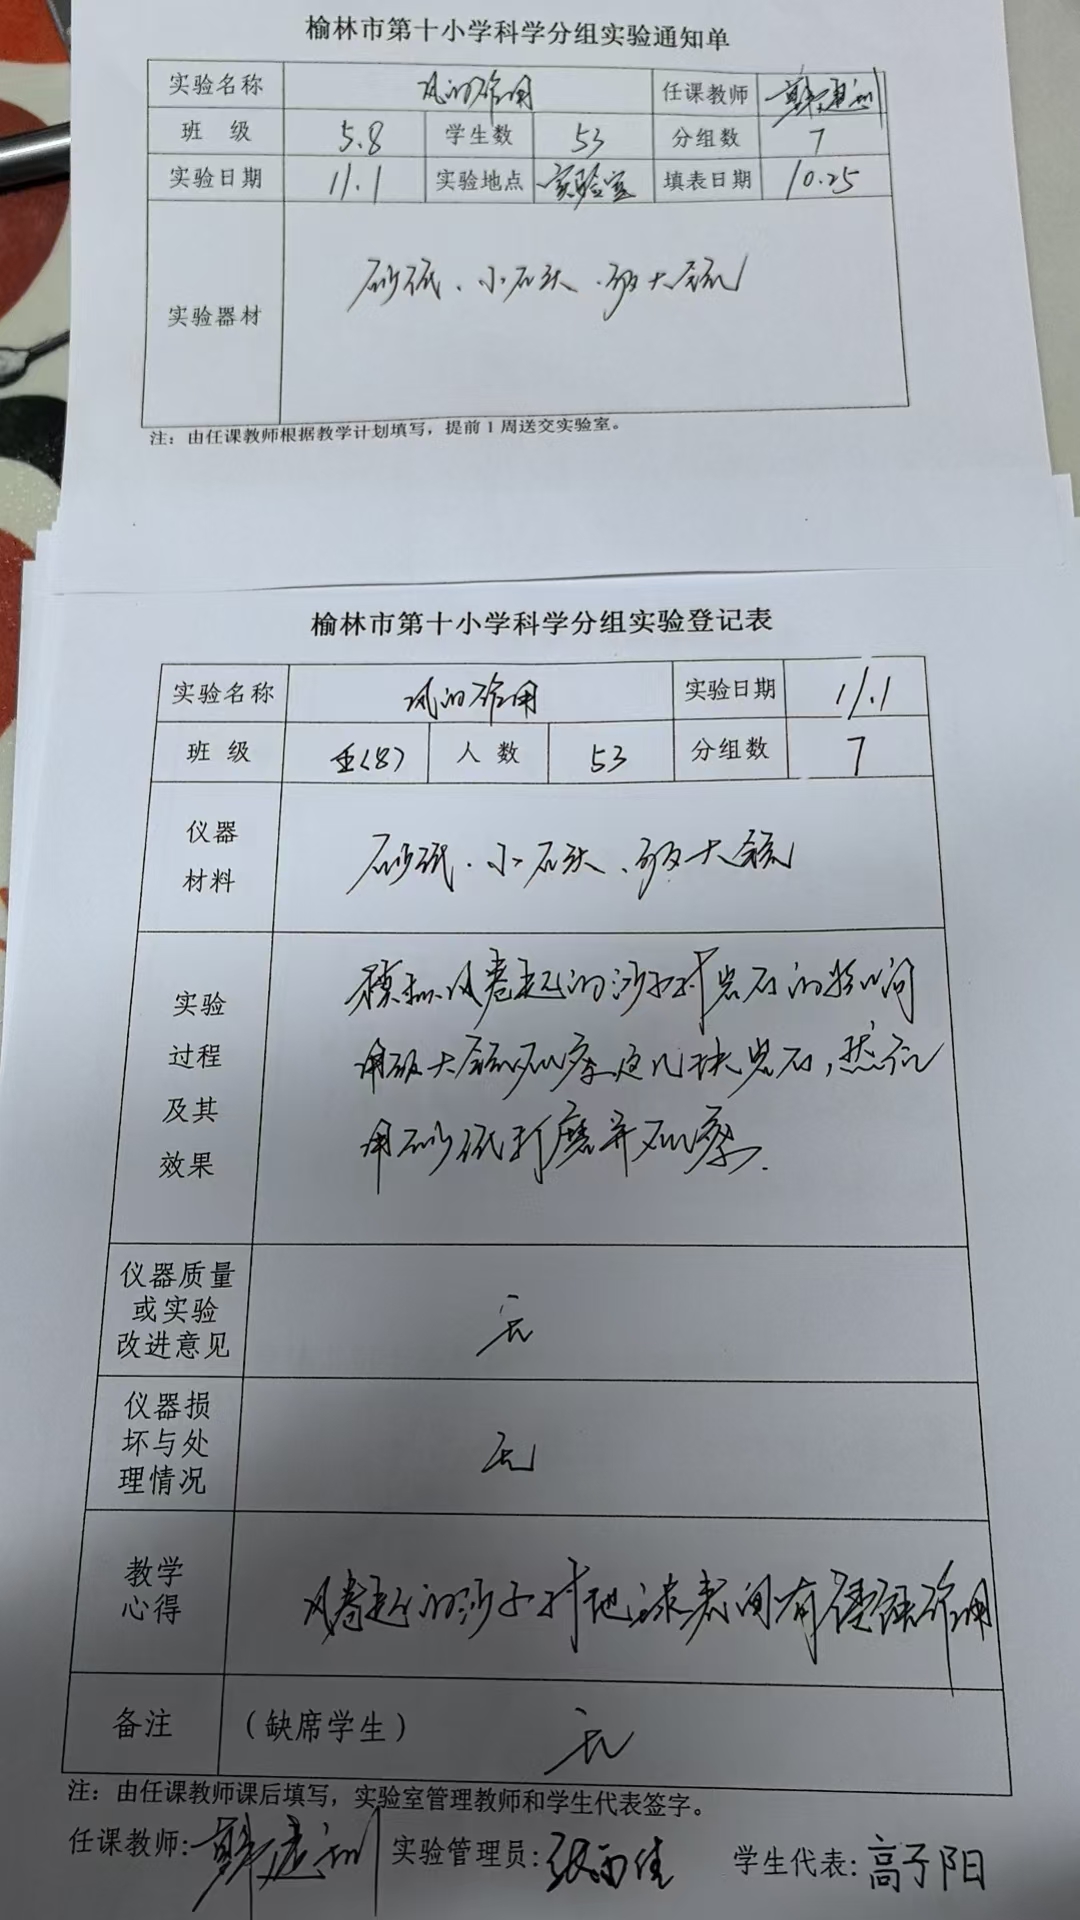 榆林市第十小学科学分组实验通知单
实验名称 风的作用 任课教师
班 级 5.8 学生数 53 分组数 7
实验日期 11.1 实验地点 实验室 填表日期 10.25
实验器材 砂纸、小石头、放大镜
注：由任课教师根据教学计划填写，提前1周送交实验室。
榆林市第十小学科学分组实验登记表
实验名称 风的作用 实验日期 11.1
班 级 五(8) 人 数 53 分组数 7
仪器
材料
砂纸、小石头、放大镜
实验
过程
及其
效果
模拟风卷起的沙子对岩石的影响
用放大镜观察这几块岩石，然后
用砂纸打磨并观察.
仪器质量
或实验
改进意见
无
仪器损
坏与处
理情况
无
教学
心得
风卷起的沙子对地球表面有侵蚀作用
备注 （缺席学生） 无
注：由任课教师课后填写，实验室管理教师和学生代表签字。
任课教师: 实验管理员: 学生代表: 高子阳